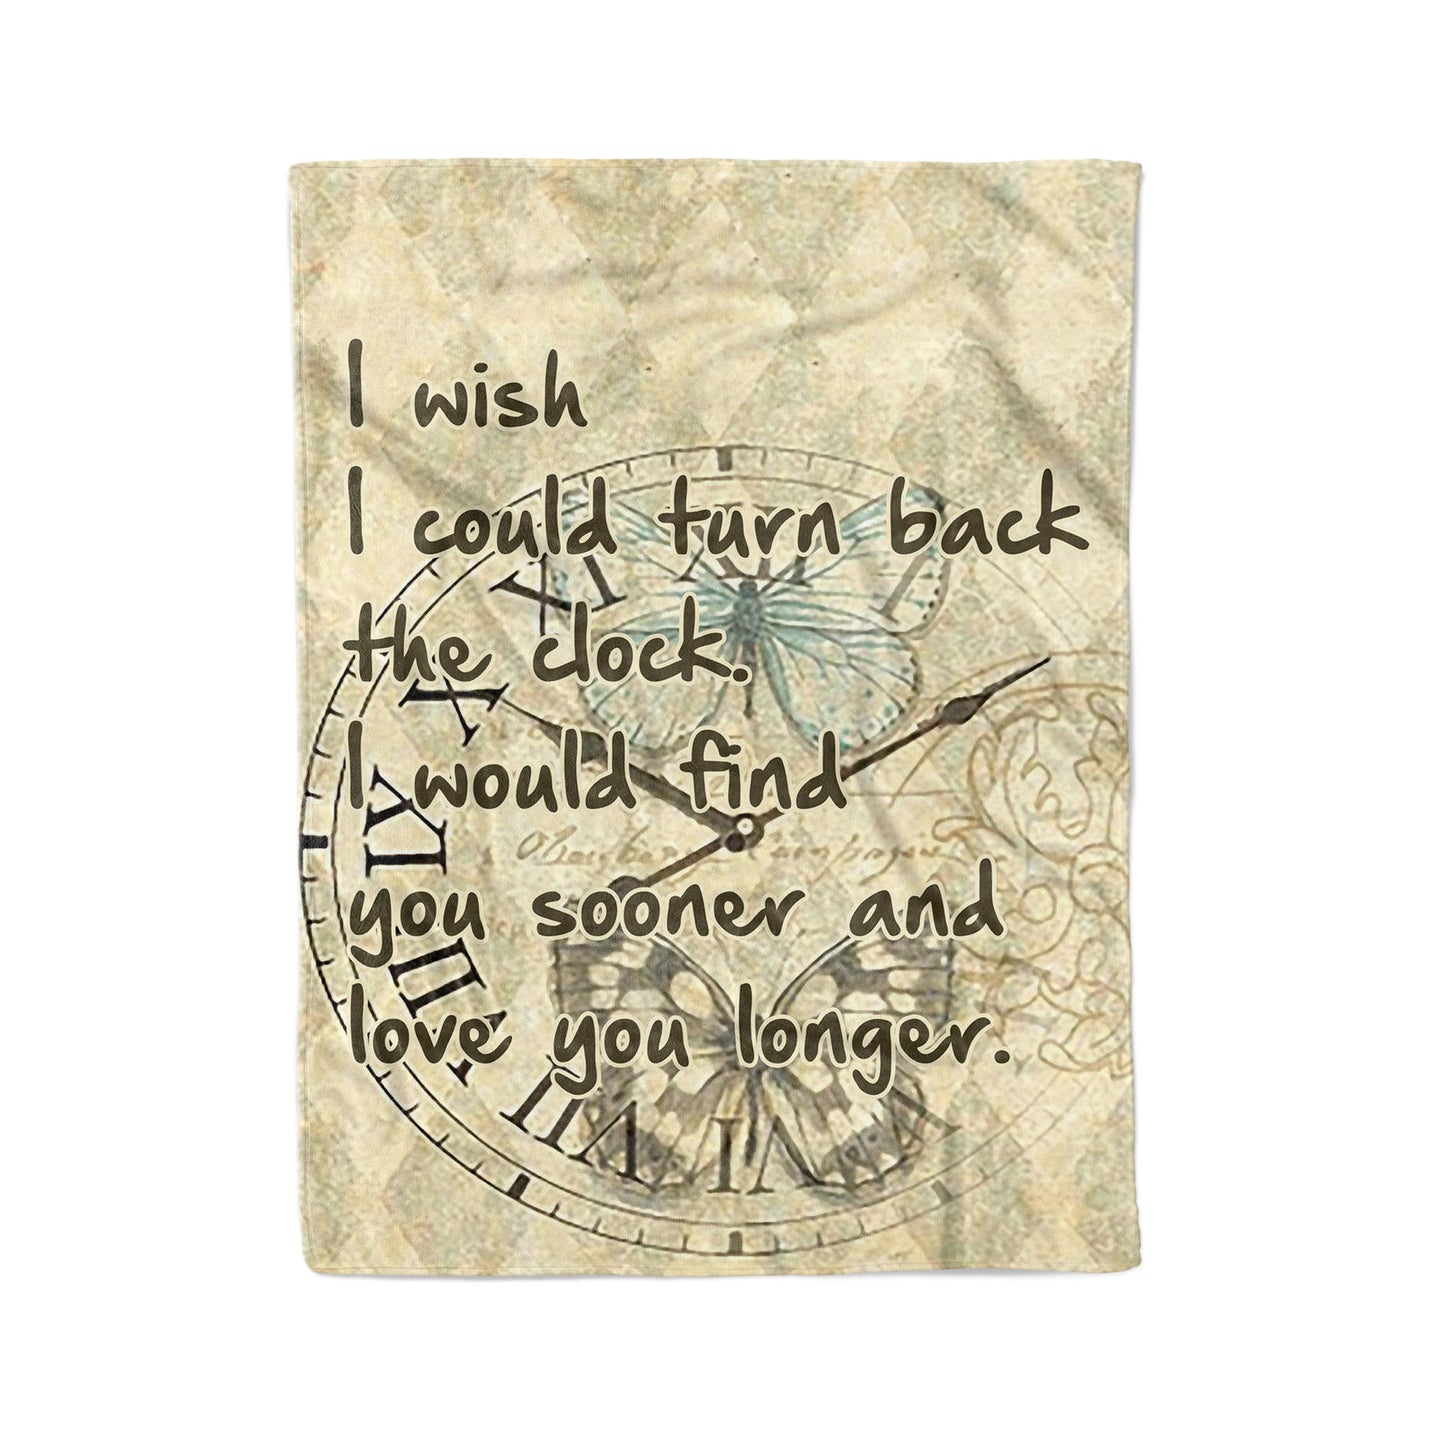 I wish
I could turn back
the clock.
I would find
you sooner and
love you longer.
XI
XII
I
X
IX
VIII
VII
VI
V